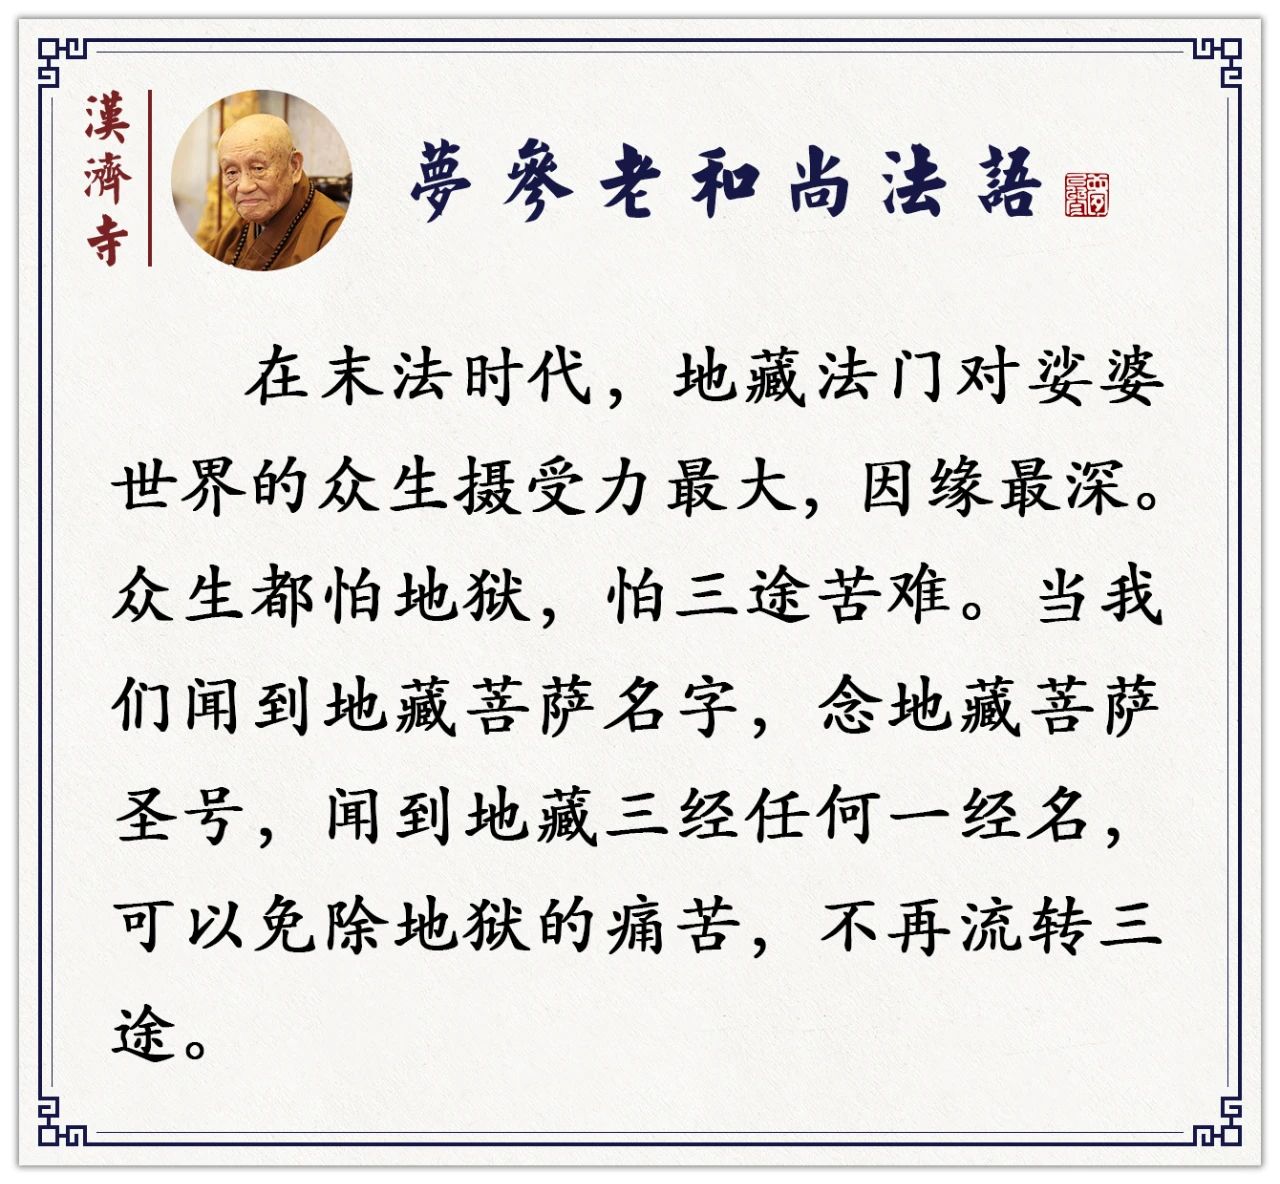 漢濟寺
夢參老和尚法語
在末法时代，地藏法门对娑婆
世界的众生摄受力最大，因缘最深。
众生都怕地狱，怕三途苦难。当我
们闻到地藏菩萨名字，念地藏菩萨
圣号，闻到地藏三经任何一经名，
可以免除地狱的痛苦，不再流转三
途。